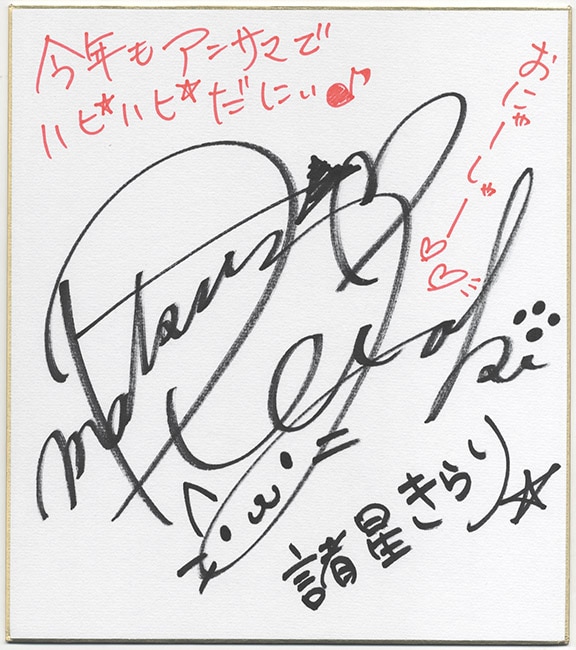 今年もアンサマで
ハピ☆ハピ☆だにぃ♪
おにゃーしゃー♡♡
諸星きらり☆